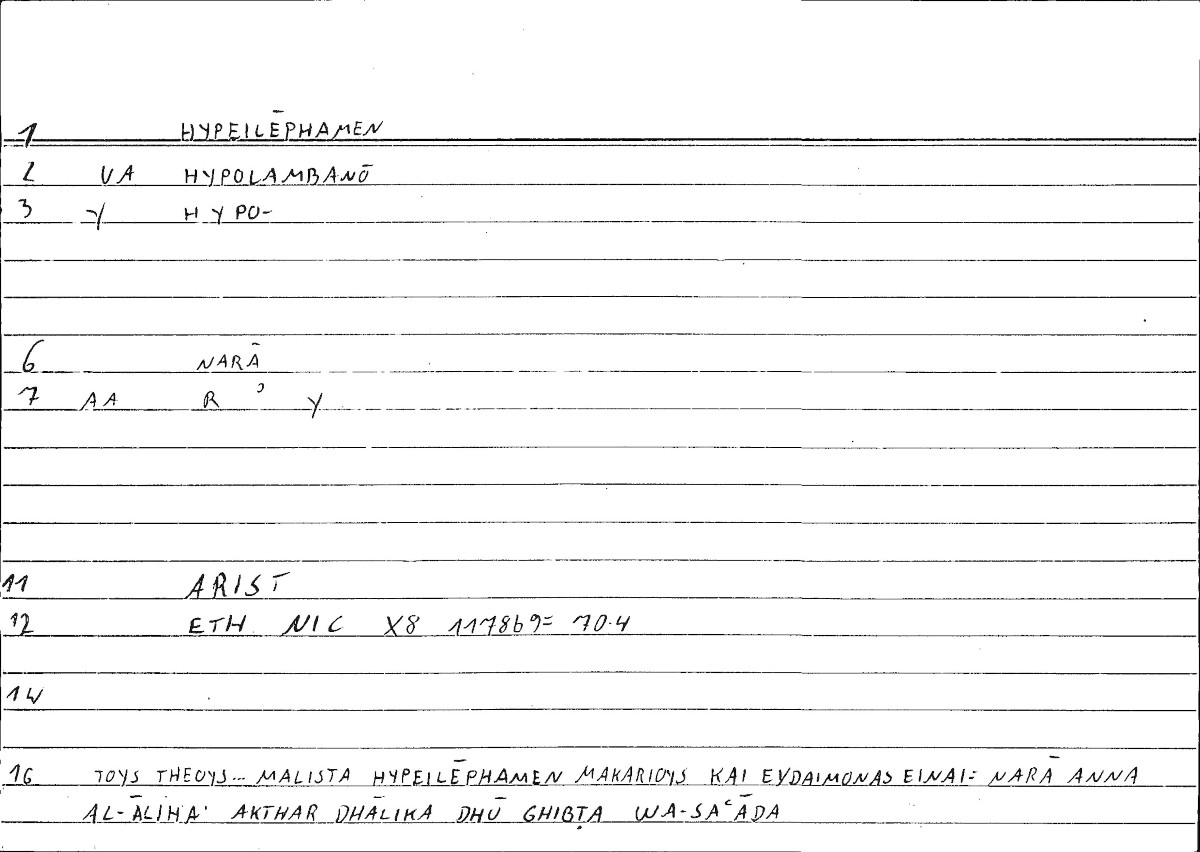 1 HYPEILĒPHAMEN
2 VA HYPOLAMBANŌ
3 Y HYPO-
6 NARĀ
7 AA R ʾ Y
11 ARIST
12 ETH NIC X8 1178b9= 70.4
14
16 TOYS THEOYS... MALISTA HYPEILĒPHAMEN MAKARIOYS KAI EYDAIMONAS EINAI= NARĀ ANNA
AL-ĀLIHA· AKTHAR DHĀLIKA DHŪ GHIBṬA WA-SAʿĀDA